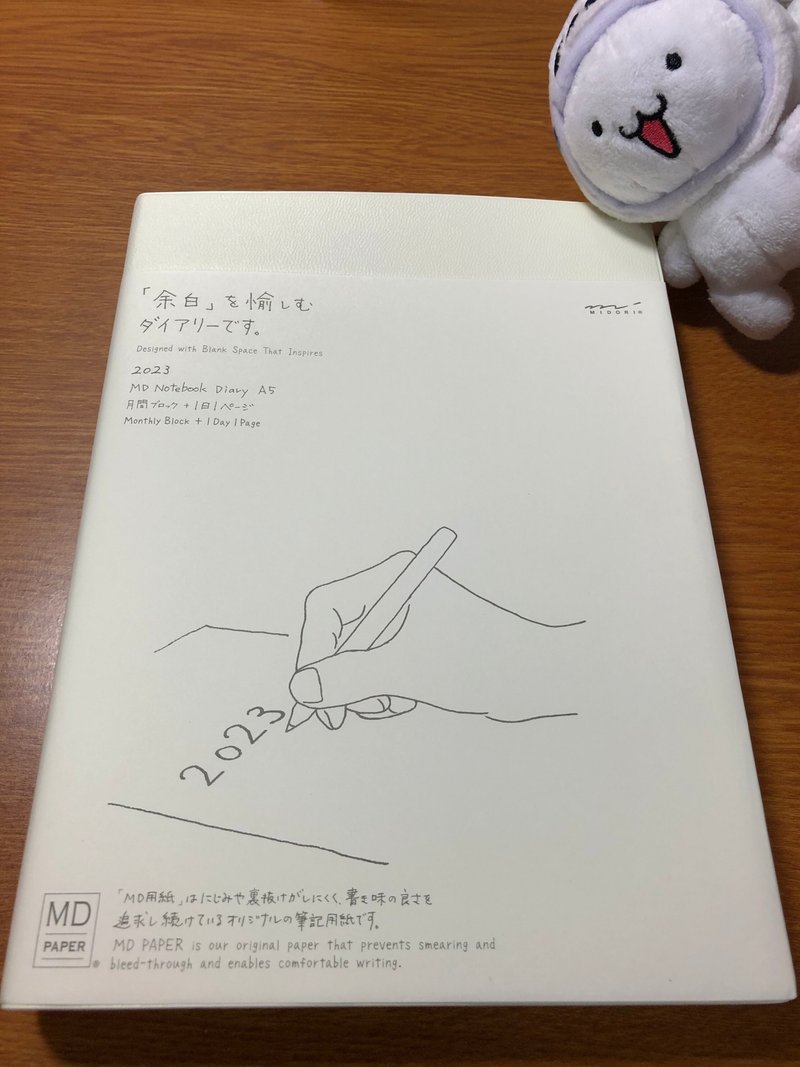 「余白」を愉しむ
ダイアリーです。
Designed with Blank Space That Inspires
2023
MD Notebook Diary A5
月間ブロック + 1日1ページ
Monthly Block + 1 Day 1 Page
MIDORI®
2023
MD
PAPER®
「MD用紙」はにじみや裏抜けがしにくく、書き味の良さを
追求し続けているオリジナルの筆記用紙です。
MD PAPER is our original paper that prevents smearing and
bleed-through and enables comfortable writing.